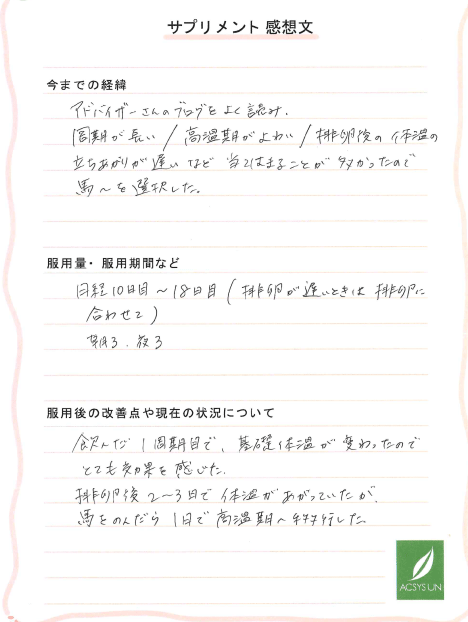 サプリメント 感想文
今までの経緯
アドバイザーさんのブログをよく読み、
周期が長い / 高温期がよわい / 排卵後の体温の
立ちあがりが遅い など 当てはまることが多かったので
馬～を選択した。
服用量・服用期間など
月経10日目～18日目 ( 排卵が遅いときは 排卵に
合わせて )
朝3、夜3
服用後の改善点や現在の状況について
飲んだ1周期目で、基礎体温が変わったので
とても効果を感じた。
排卵後2～3日で体温があがっていたが、
馬をのんだら1日で高温期へ移行した。
ACSYS UN